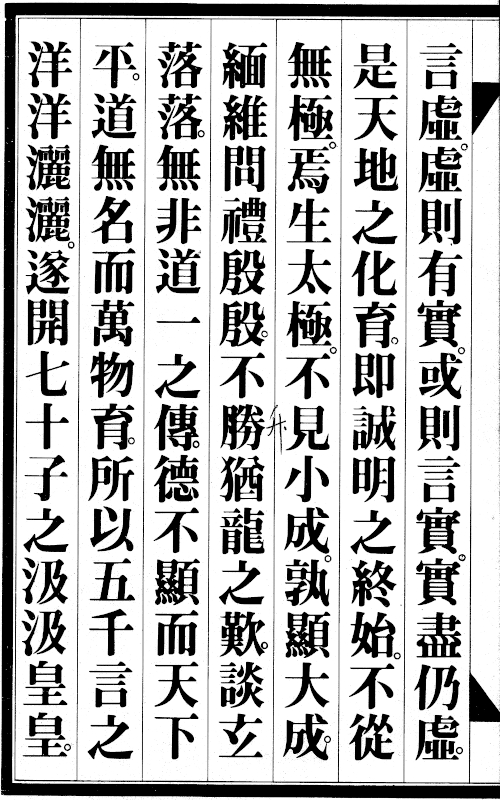 言虛。虛則有實。或則言實。實盡仍虛。
是天地之化育。即誠明之終始。不從
無極。焉生太極。不見小成。孰顯大成。
緬維問禮殷殷。不勝猶龍之歎。談玄
落落。無非道一之傳。德不顯而天下
平。道無名而萬物育。所以五千言之
洋洋灑灑。遂開七十子之汲汲皇皇。